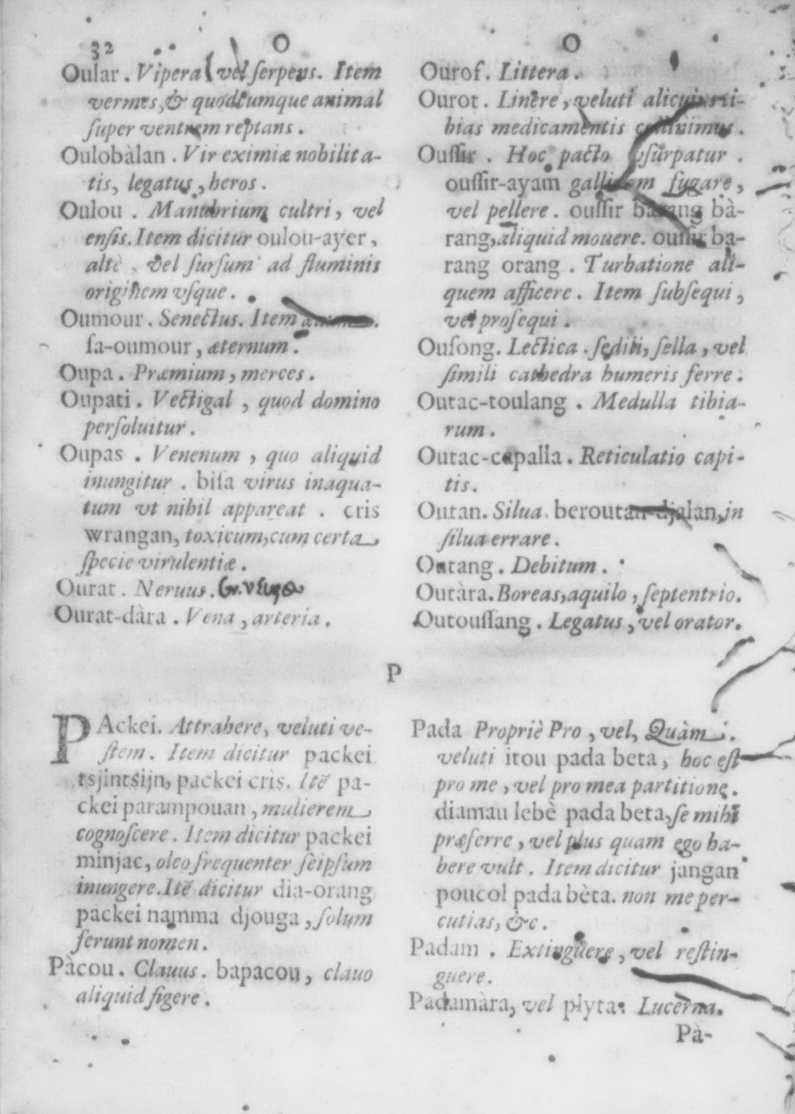 32 O
Oular. Vipera vel ſerpens. Item
vermes, & quodcumque animal
ſuper ventrem reptans.
Oulobàlan. Vir eximiæ nobilita-
tis, legatus, heros.
Oulou. Manubrium cultri, vel
enſis. Item dicitur oulou-ayer,
altè, vel ſurſum ad fluminis
originem vſque.
Oumour. Senectus. Item
ſa-oumour, æternum.
Oupa. Præmium, merces.
Oupati. Vectigal, quod domino
perſoluitur.
Oupas. Venenum, quo aliquid
inungitur. biſa virus inaqua-
tum vt nihil appareat. cris
wrangan, toxicum, cum certa
ſpecie virulentiæ.
Ourat. Neruus. Gr.
Ourat-dàra. Vena, arteria.
O
Ourof. Littera.
Ourot. Linere, veluti
bias medicamentis
Ouſſir. Hoc pacto vſurpatur.
ouſſir-ayam fugare,
vel pellere. ouſſir barang bà-
rang, aliquid mouere. ouſſir ba-
rang orang. Turbatione ali-
quem afficere. Item ſubſequi,
vel proſequi.
Ouſong. Lectica ſedili, ſella, vel
ſimili cathedra humeris ferre.
Outac-toulang. Medulla tibia-
rum.
Outac-capalla. Reticulatio capi-
tis.
Outan. Silua. beroutan-djalan, in
ſilua errare.
Outang. Debitum.
Outàra. Boreas, aquilo, ſeptentrio.
Outouſſang. Legatus, vel orator.
P
PAckei. Attrahere, veluti ve-
ſtem. Item dicitur packei
tsjintsijn, packei cris. Itē pa-
ckei parampouan, mulierem
cognoſcere. Item dicitur packei
minjac, oleo frequenter ſeipſum
inungere. Itē dicitur dia-orang
packei namma djouga, ſolum
ferunt nomen.
Pàcou. Clauus. bapacou, clauo
aliquid figere.
Pada Propriè Pro, vel, Quàm.
veluti itou pada beta, hoc eſt
pro me, vel pro mea partitione.
diamau lebè pada beta, ſe mihi
præferre, vel plus quam ego ha-
bere vult. Item dicitur jangan
poucol pada bèta. non me per-
cutias, &c.
Padam. Extinguere, vel reſtin-
guere.
Padamàra, vel plyta. Lucerna.
Pà-